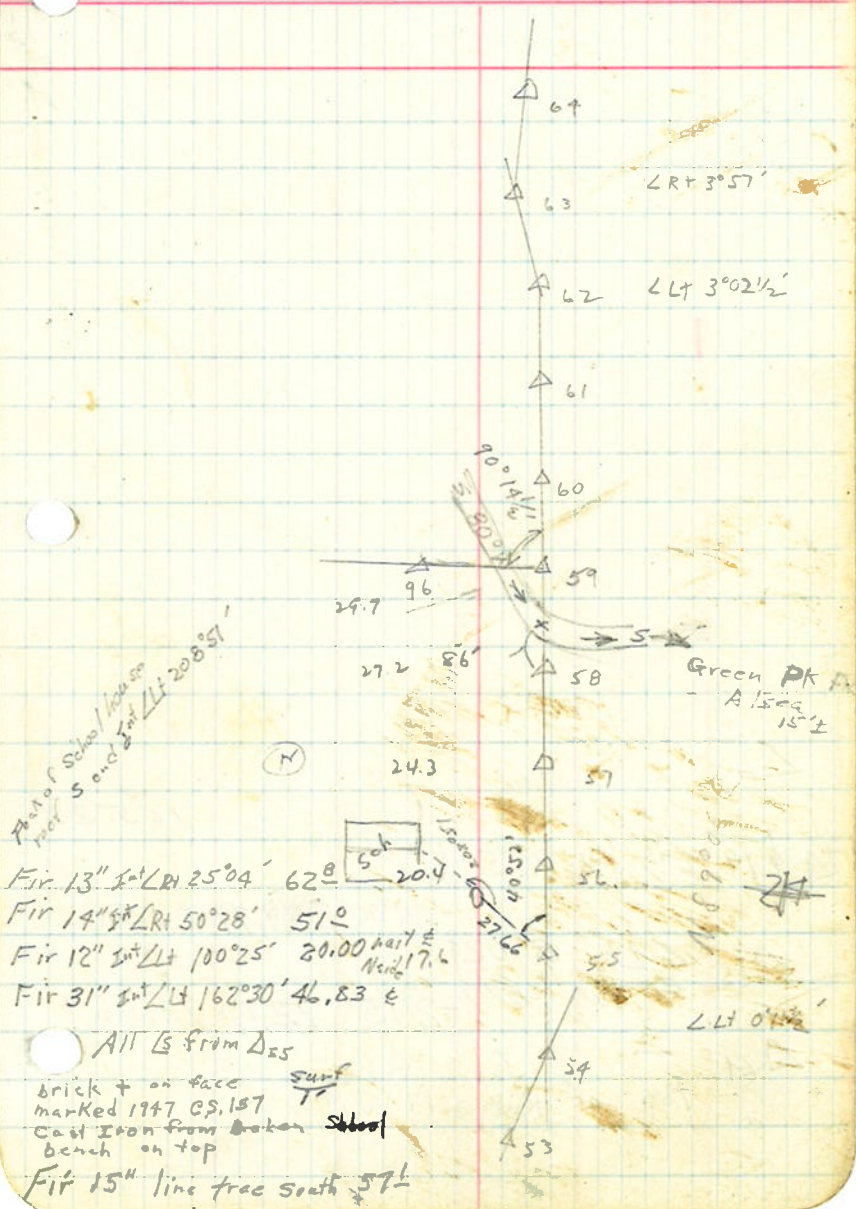 64
∠Rt 3°57'
63
62
∠Lt 3°02½'
61
60
90°14½'
59
96
29.7
S
58
27.2 86'
Green PK
Alsea
15'±
Peak of School house
roof S end Int ∠Lt 208°51'
N
24.3
57
Sch
20.4
27.66
56
24
Fir 13" Int ∠Rt 25°04' 62⁸
Fir 14" Int ∠Rt 50°28' 51⁰
Fir 12" Int ∠Lt 100°25' 20.00 nail
N side 17.6
55
Fir 31" Int ∠Lt 162°30' 46.83 ¢
∠Lt
All ∠s from Δ55
54
brick + on face
marked 1947 CS.157
Surf
1'
Cast Iron from broken School
bench on top
53
Fir 15" line tree South 57¹